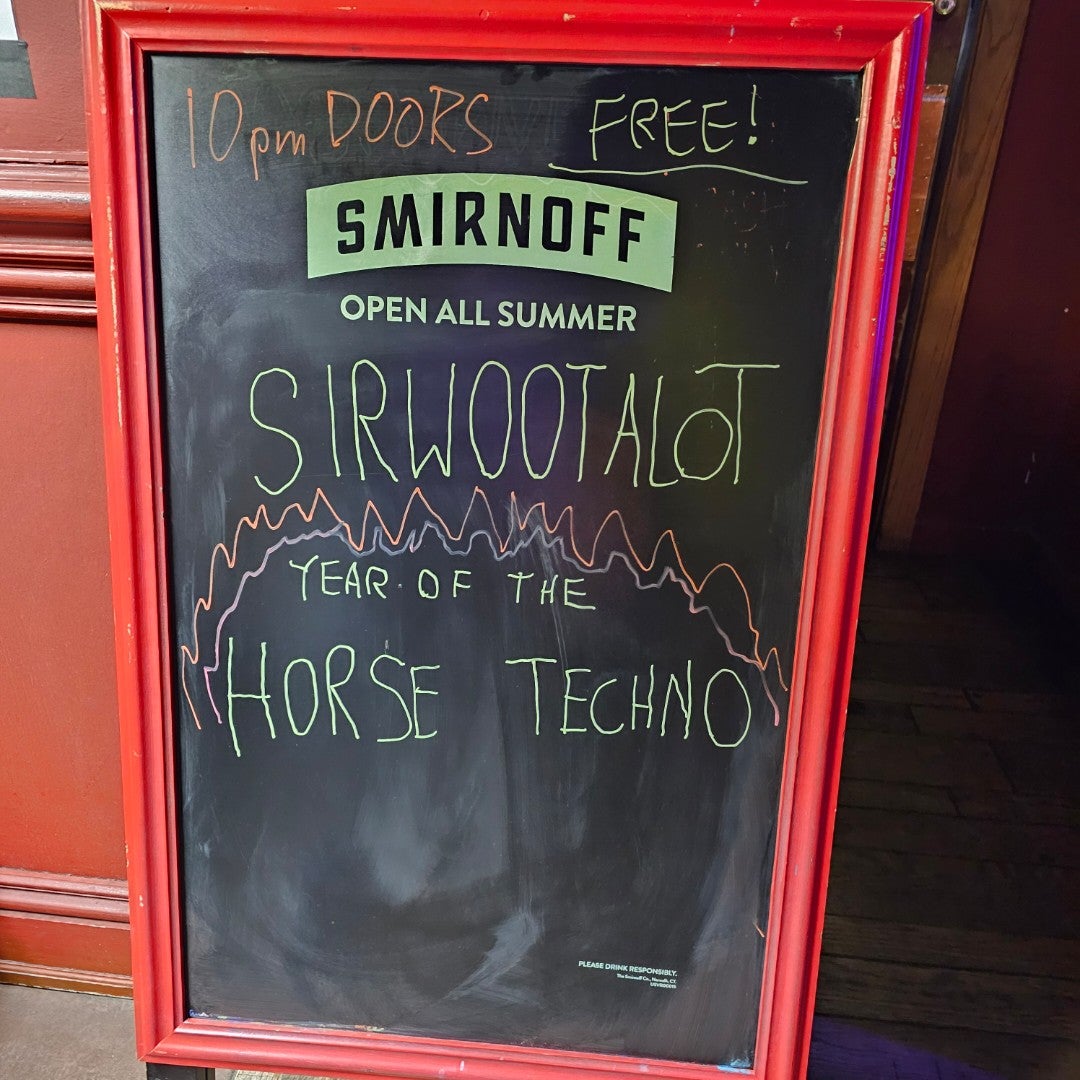 10pm DOORS FREE!
SMIRNOFF
OPEN ALL SUMMER
SIRWOOTALOT
YEAR OF THE
HORSE TECHNO
PLEASE DRINK RESPONSIBLY.
The Smirnoff Co., Norwalk, CT.